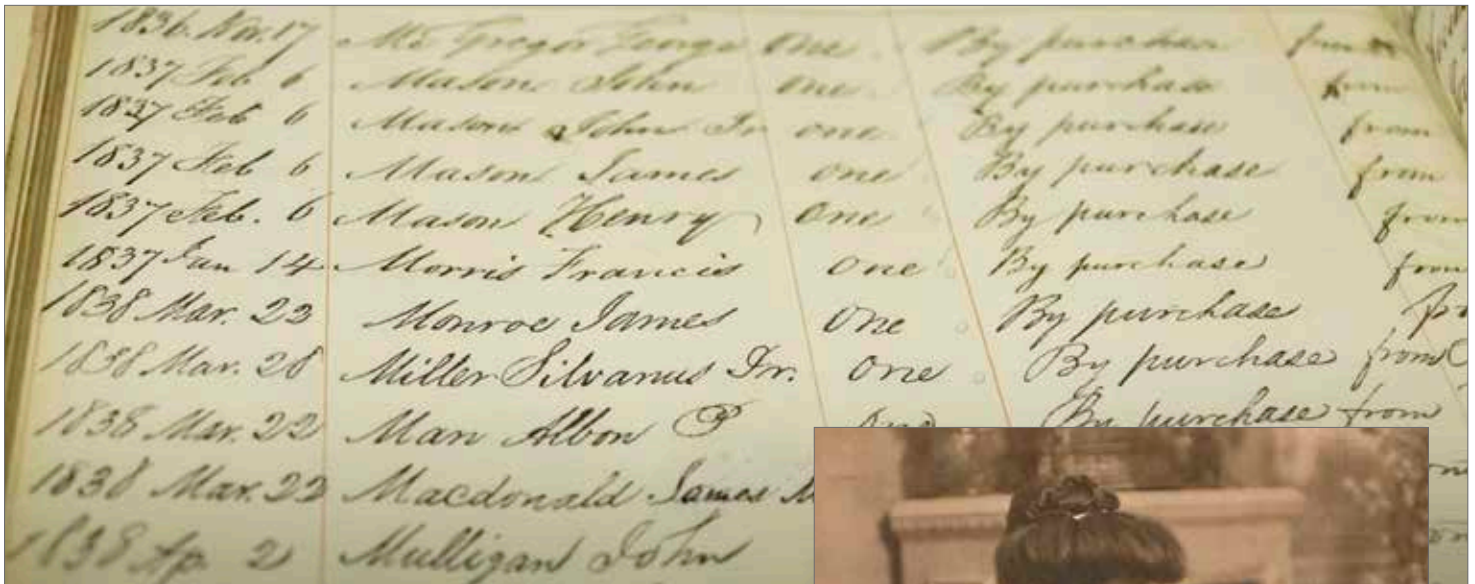 1836. Nov. 17 Mc Gregor George One By purchase from
1837 Feb 6 Mason John One By purchase from
1837 Feb 6 Mason John Jr one By purchase from
1837 Feb 6 Mason James one By purchase from
1837 Feb. 6 Mason Henry One By purchase from
1837 Jan 14 Morris Francis One By purchase from
1838 Mar. 22 Monroe James One By purchase
1838 Mar. 28 Miller Silvanus Jr. One By purchase from
1838 Mar. 22 Man Albon P By purchase from
1838 Mar. 22 Macdonald James
1838 Ap. 2 Mulligan John